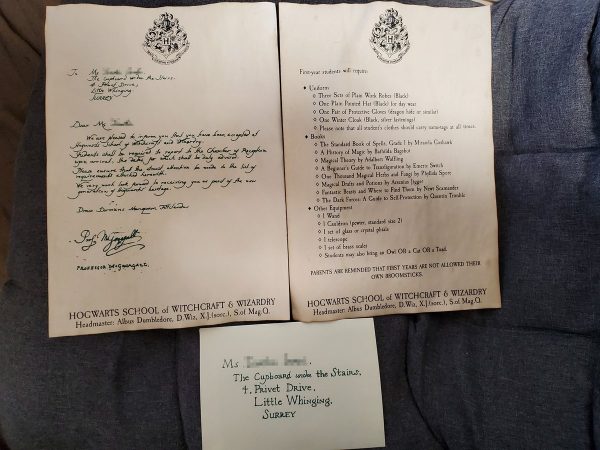 To Ms
The Cupboard under the Stairs,
4 Privet Drive,
Little Whinging,
SURREY
Dear Ms
We are pleased to inform you that you have been accepted at
Hogwarts School of Witchcraft and Wizardry.
Students shall be required to report to the Chamber of Reception
upon arrival, the dates for which shall be duly advised.
Please ensure that the utmost attention be made to the list of
requirements attached herewith.
We very much look forward to receiving you as part of the new
generation of Hogwarts' heritage.
Draco Dormiens Nunquam Titillandus
Prof. McGonagall
PROFESSOR McGONAGALL
HOGWARTS SCHOOL of WITCHCRAFT & WIZARDRY
Headmaster: Albus Dumbledore, D.Wiz, X.J.(sorc.), S.of Mag.Q.
First-year students will require:
Uniform
Three Sets of Plain Work Robes (Black)
One Plain Pointed Hat (Black) for day wear
One Pair of Protective Gloves (dragon hide or similar)
One Winter Cloak (Black, silver fastenings)
Please note that all student's clothes should carry name-tags at all times.
Books
The Standard Book of Spells, Grade 1 by Miranda Goshawk
A History of Magic by Bathilda Bagshot
Magical Theory by Adalbert Waffling
A Beginner's Guide to Transfiguration by Emeric Switch
One Thousand Magical Herbs and Fungi by Phyllida Spore
Magical Drafts and Potions by Arsenius Jigger
Fantastic Beasts and Where to Find Them by Newt Scamander
The Dark Forces: A Guide to Self-Protection by Quentin Trimble
Other Equipment
1 Wand
1 Cauldron (pewter, standard size 2)
1 set of glass or crystal phials
1 telescope
1 set of brass scales
Students may also bring an Owl OR a Cat OR a Toad.
PARENTS ARE REMINDED THAT FIRST YEARS ARE NOT ALLOWED THEIR
OWN BROOMSTICKS.
HOGWARTS SCHOOL of WITCHCRAFT & WIZARDRY
Headmaster: Albus Dumbledore, D.Wiz, X.J.(sorc.), S.of Mag.Q.
Ms
The Cupboard under the Stairs,
4. Privet Drive,
Little Whinging,
SURREY